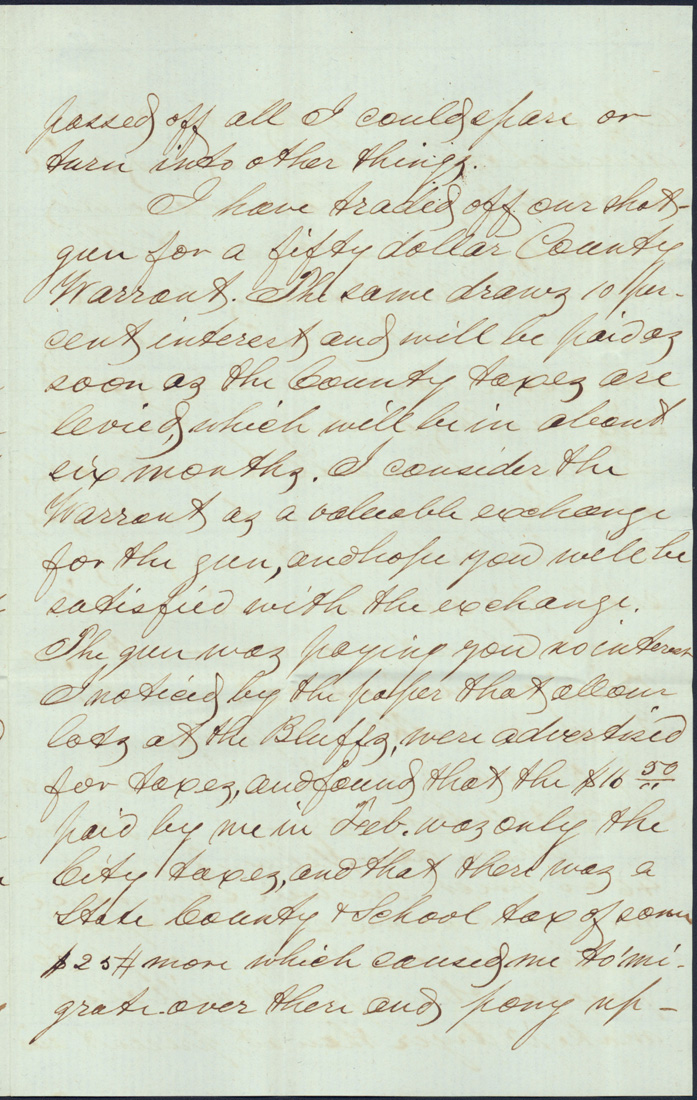 passed off all I could spare or
turn into other things.
I have traded off our shot-
gun for a fifty dollar County
Warrant. The same draws 10 per-
cent interest and will be paid as
soon as the County taxes are
levied, which will be in about
six months. I consider the
Warrant as a valuable exchange
for the gun, and hope you will be
satisfied with the exchange.
The gun was paying you no interest
I noticed by the paper that all our
lots at the Bluffs, were advertised
for taxes, and found that the $16 50
paid by me in Feb. was only the
City taxes, and that there was a
State County & School tax of some
$25 more which caused me to 'mi-
grate over there and pony up-